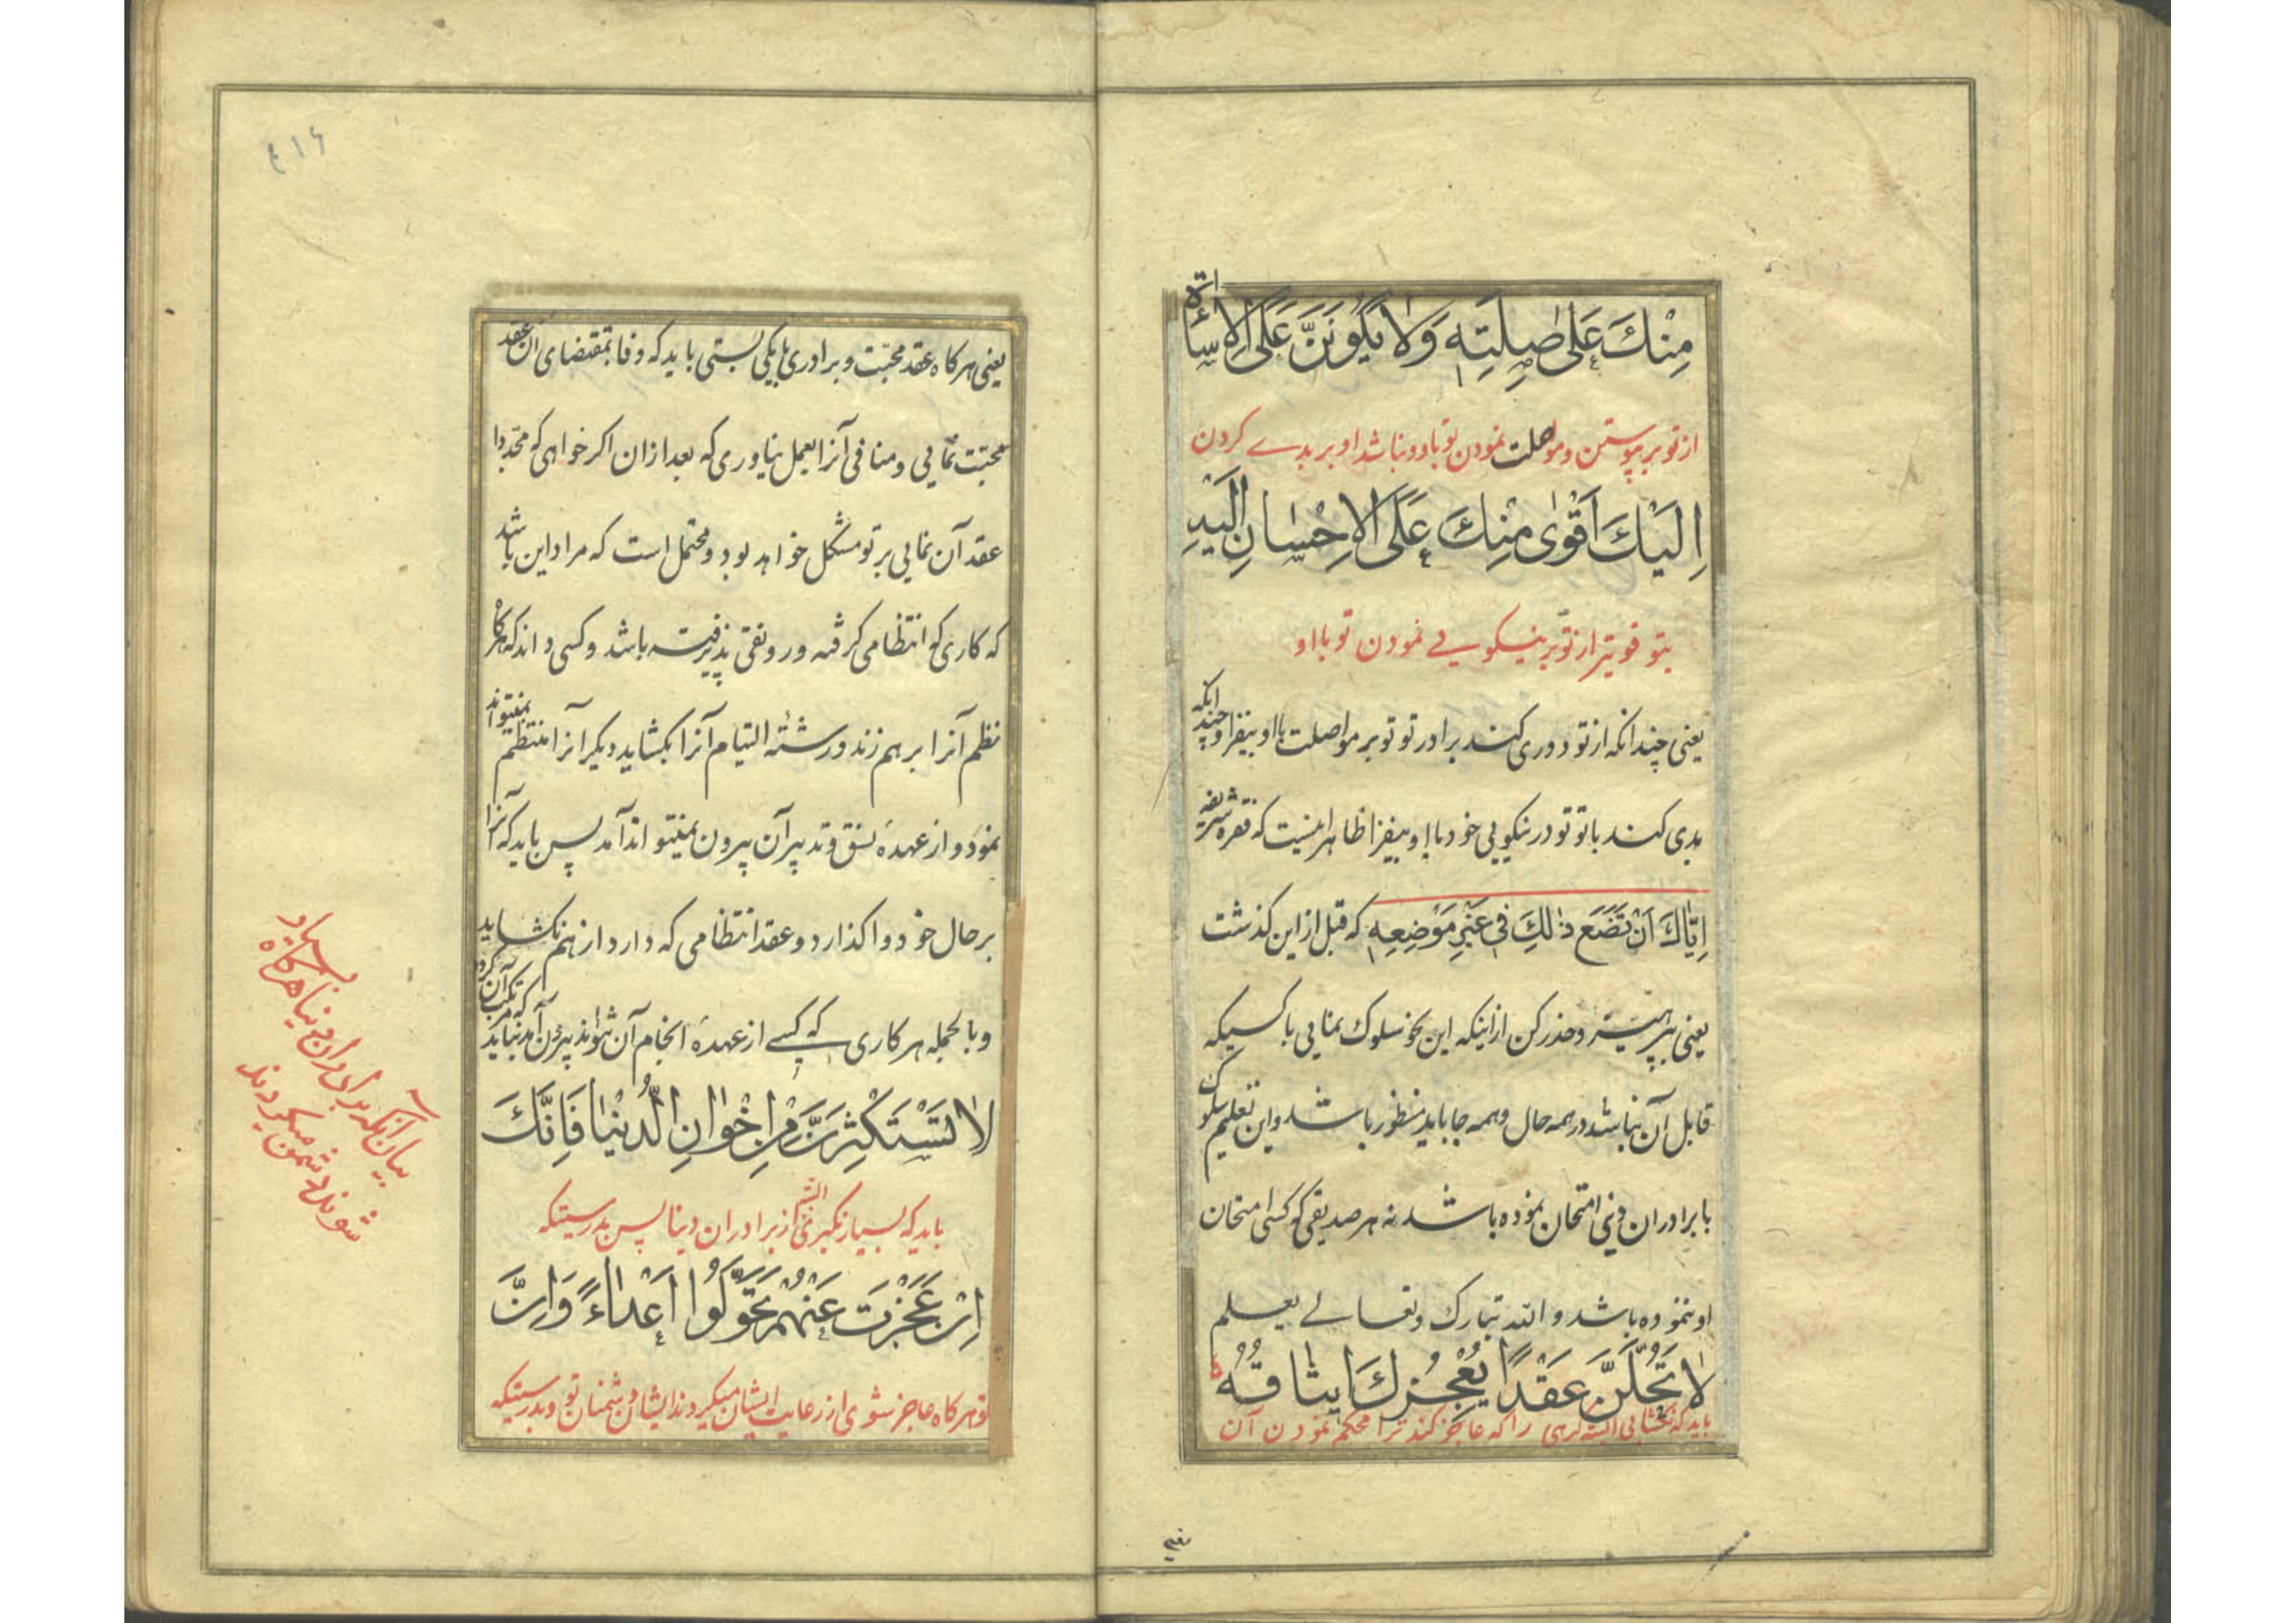 مِنْكَ عَلى صِلَتِهِ وَلا يَكُونَنَّ عَلَى الاِسائَةِ
از تو بر پیوستن و مواصلت نمودن تو باو و نباشد او بر بدے کردن
اِلَيْكَ اَقْوى مِنْكَ عَلَى الاِحْسانِ اِلَيْهِ
بتو قویتر از تو بر نیکویے نمودن تو با او
یعنی چندانکه از تو دوری کند برادر تو تو بر مواصلت با او بیفزا و چندانکه
بدی کند با تو تو در نیکویی خود با او بیفزا ظاهر اینست که فقره شریفه
اِيّاكَ اَنْ تَضَعَ ذلِكَ فى غَيْرِ مَوْضِعِهِ که قبل از این کذشت
یعنی بپرهیز و حذر کن از اینکه این نحو سلوک نمایی با کسیکه
قابل آن نباشد در همه حال و همه جا باید منظور باشد و این تعلیم سلوک
با برادران دینی امتحان نموده باشد نه هر صدیقی که کسی امتحان
او ننموده باشد والله تبارک وتعالے یعلم
لا تَحُلَّنَّ عَقْدًا يُعْجِزُكَ ايثاقُهُ
باید که نکشایی البته کرهی را که عاجز کند ترا محکم نمودن آن
یعنی
٤١۶
یعنی هرکاه عقد محبّت و برادری با یکی بستی باید که وفا بمقتضای ان عقد
محبّت نمایی و منافی آنرا بعمل نیاوری که بعد از ان اکر خواهی که مجدّدا
عقد آن نمایی بر تو مشکل خواهد بود و محتمل است که مراد این باشد
که کاری که انتظامی کرفته و رونقی پذیرفته باشد و کسی داند که هرکاه
نظم آنرا بر هم زند و رشتهٔ التیام آنرا بکشاید دیکر آنرا منتظم نمیتواند
نمود و از عهدهٔ نسق و تدبیر آن بیرون نمیتواند آمد پس باید که آنرا
بر حال خود واکذارد و عقد انتظامی که دارد از هم نکشاید
و بالجمله هر کاری که کسے از عهدهٔ انجام آن نتواند بیرون آمد نباید که مرتکب آن کردد
لا تَسْتَكْثِرَنَّ مِنْ اِخْوانِ الدُّنْيا فَاِنَّكَ
باید که بسیار نکیری البتّه از برادران دنیا پس بدرستیکه
اِنْ عَجَزْتَ عَنْهُمْ تَحَوَّلُوا اَعْداءً وَاِنَّ
تو هرکاه عاجز شوی از رعایت ایشان میکردند ایشان دشمنان تو و بدرستیکه
بیان آنکه برادران دنیا هرکاه بسیار
شوند دشمن میکردند